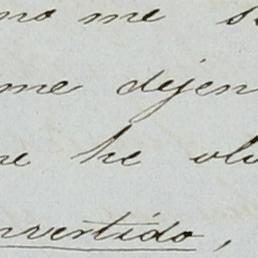 no me s
me dejen
ue he olv
nvertido,